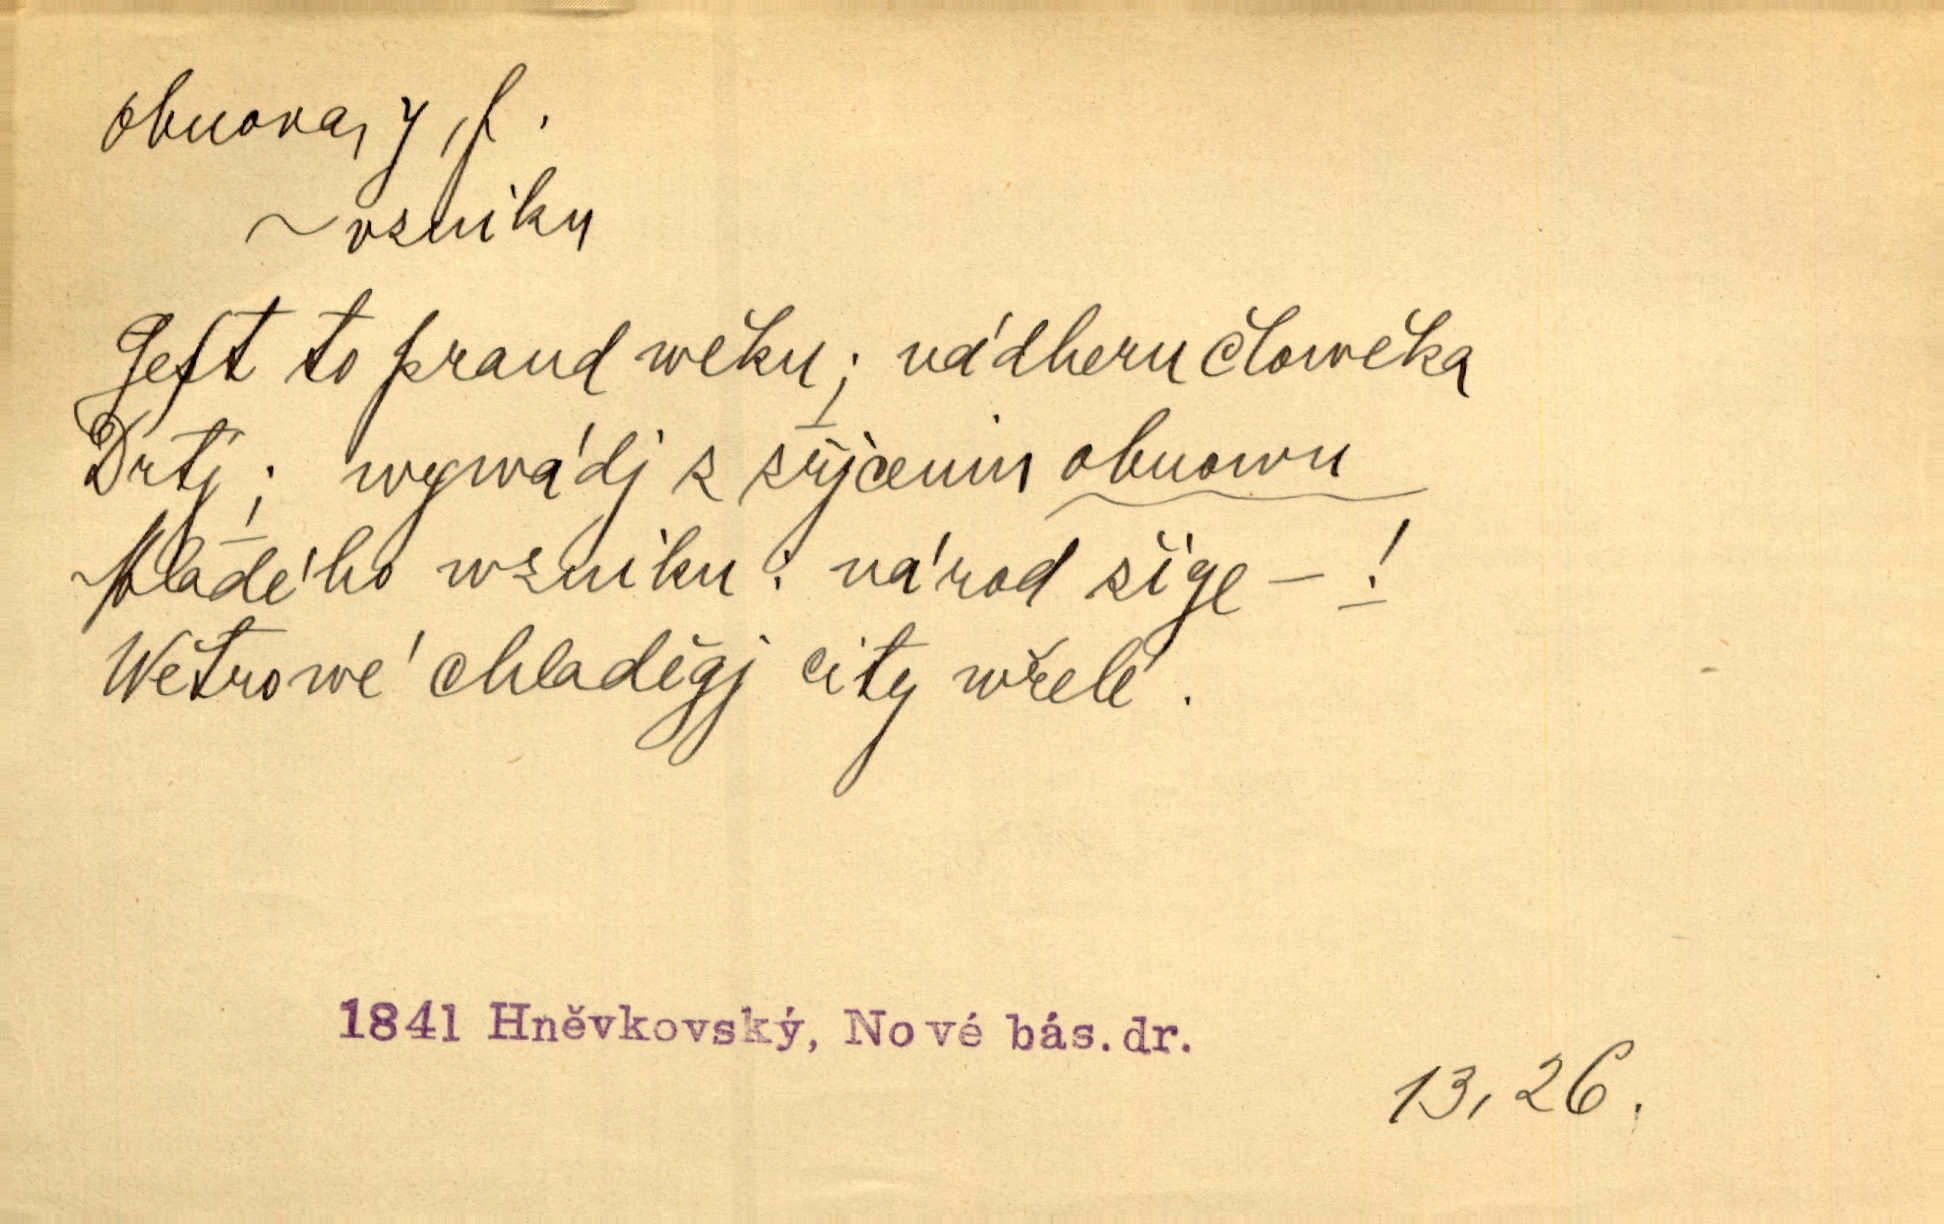 obnova, y, f.
~ vzniku
Gest to praud wěku; nádheru člowěka
Drtj; wywádj z zřjcenin obnowu
Mladého wzniku: národ žige – !
Wětrowé chladěgj city wřelé.
1841 Hněvkovský, Nové bás. dr.
13, 26.